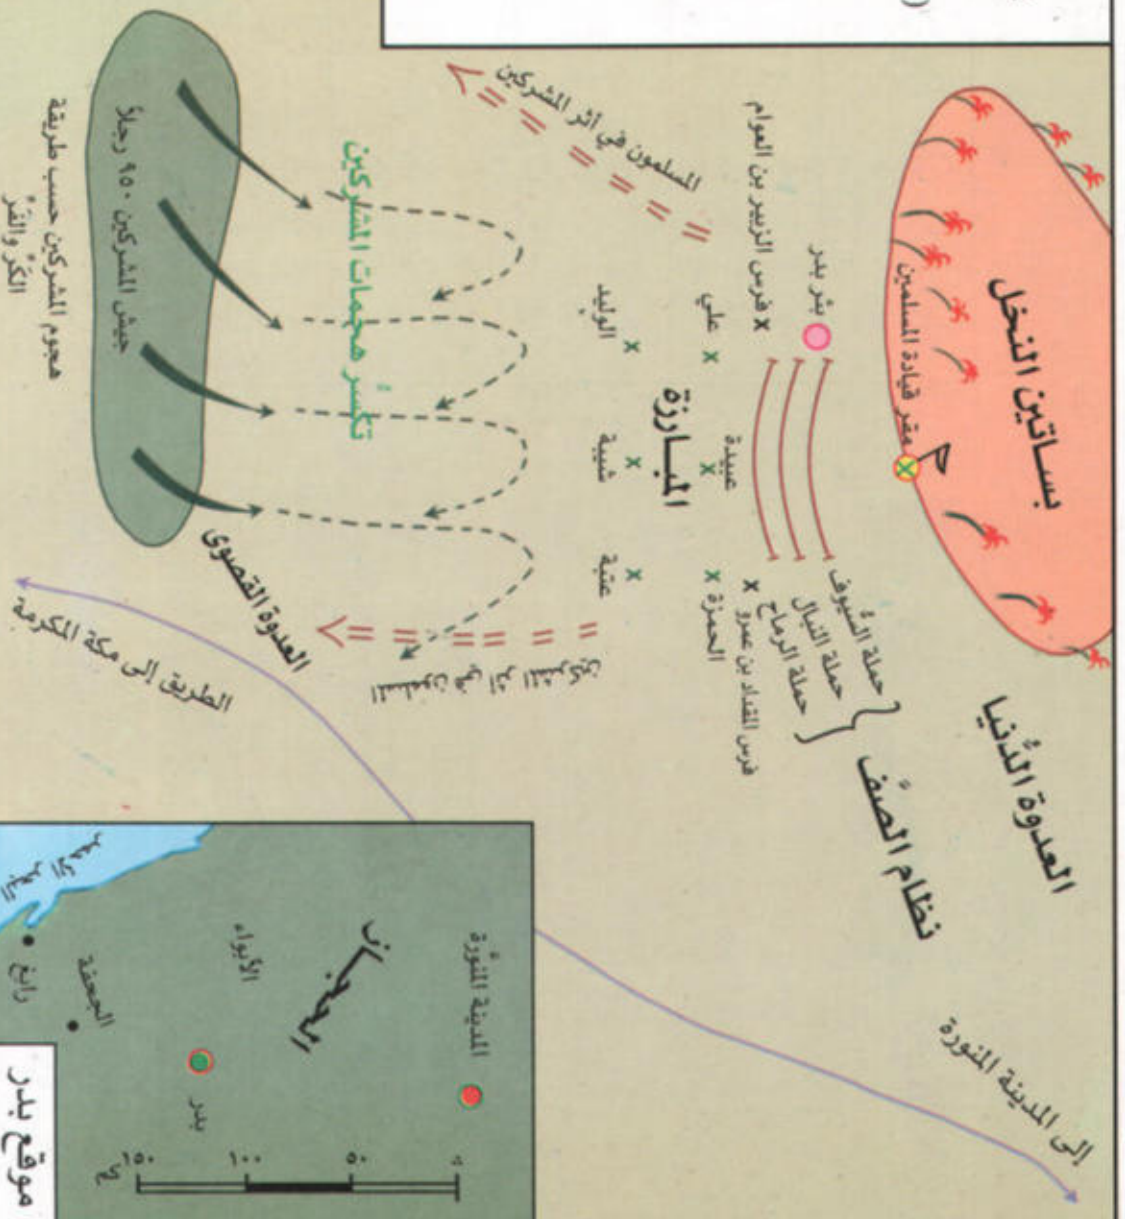 بساتين النخل
مقر قيادة المسلمين
العدوة الدُّنيا
نظام الصَّف
حملة السُّيوف
حملة النبال
حملة الرماح
بئر بدر
فرس الزبير بن العوام
فرس المقداد بن عمرو
علي
عبيدة
الحمزة
المبارزة
الوليد
شيبة
عتبة
المسلمون في أثر المشركين
المسلمون في أثر المشركين
تكسُّر هجمات المشركين
جيش المشركين ٩٥٠ رجلاً
هجوم المشركين حسب طريقة
الكَرّ والفَرّ
العدوة القصوى
الطريق إلى مكة المكرمة
إلى المدينة المنورة
المدينة المنوَّرة
الحجاز
الأبواء
بدر
الجحفة
رابغ
البحر الأحمر
٠
٥٠
١٠٠
١٥٠
موقع بدر